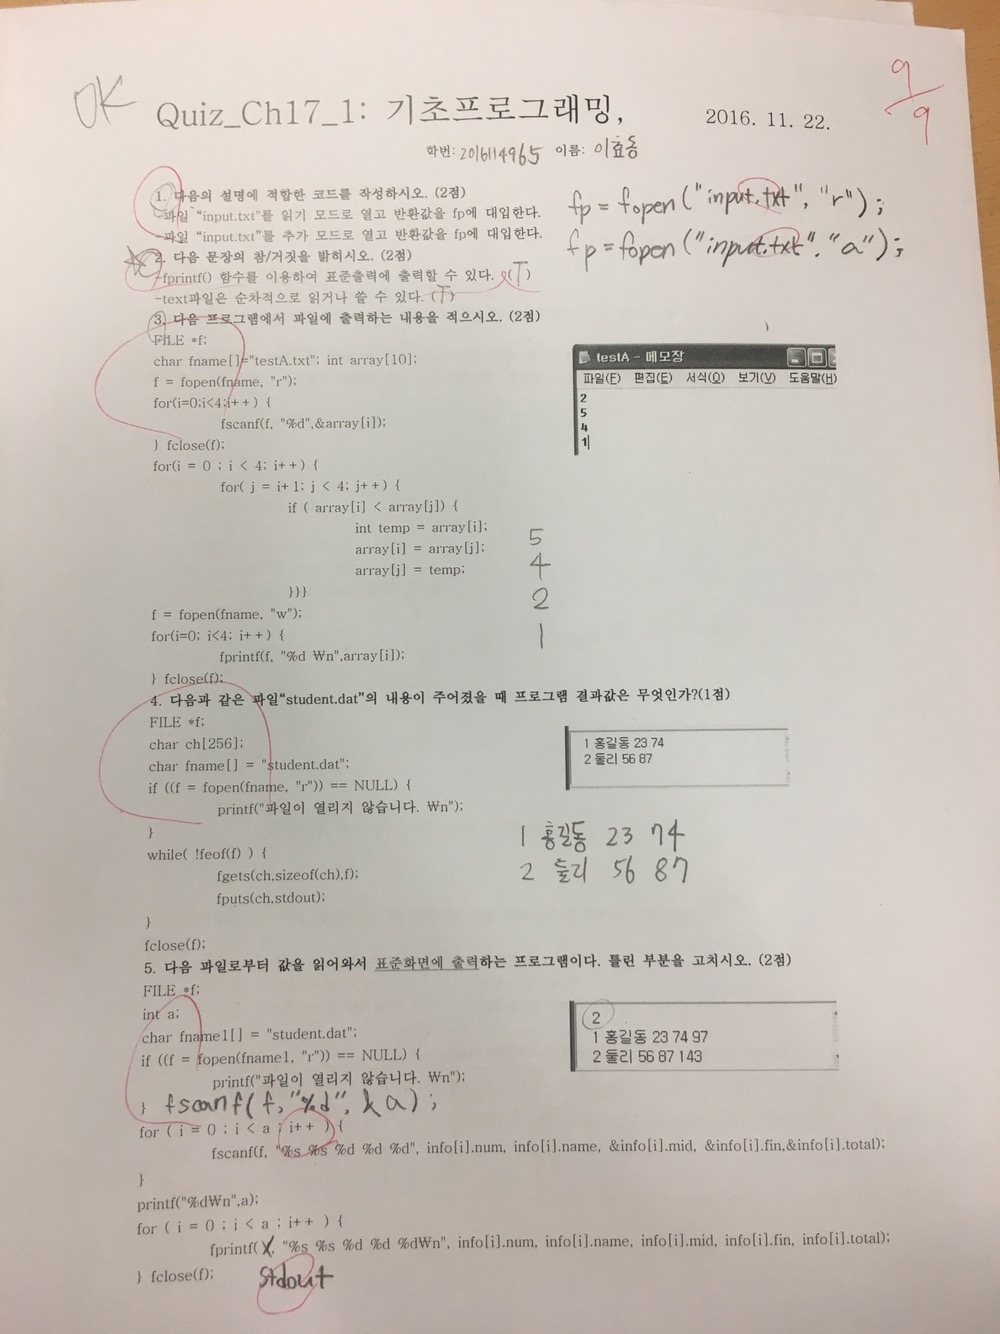 OK
9/9
Quiz_Ch17_1: 기초프로그래밍, 2016. 11. 22.
학번: 2016114965 이름: 이효동
1. 다음의 설명에 적합한 코드를 작성하시오. (2점)
-파일 "input.txt"를 읽기 모드로 열고 반환값을 fp에 대입한다.
fp = fopen("input.txt", "r");
-파일 "input.txt"를 추가 모드로 열고 반환값을 fp에 대입한다.
fp = fopen("input.txt", "a");
2. 다음 문장의 참/거짓을 밝히시오. (2점)
-fprintf() 함수를 이용하여 표준출력에 출력할 수 있다. (T)
-text파일은 순차적으로 읽거나 쓸 수 있다. (T)
3. 다음 프로그램에서 파일에 출력하는 내용을 적으시오. (2점)
FILE *f;
char fname[]="testA.txt"; int array[10];
f = fopen(fname, "r");
for(i=0;i<4;i++) {
fscanf(f, "%d",&array[i]);
} fclose(f);
for(i = 0 ; i < 4; i++) {
for( j = i+1; j < 4; j++) {
if ( array[i] < array[j]) {
int temp = array[i];
array[i] = array[j];
array[j] = temp;
}}}
f = fopen(fname, "w");
for(i=0; i<4; i++) {
fprintf(f, "%d ₩n",array[i]);
} fclose(f);
testA - 메모장
파일(F) 편집(E) 서식(O) 보기(V) 도움말(H)
2
5
4
1
5
4
2
1
4. 다음과 같은 파일"student.dat"의 내용이 주어졌을 때 프로그램 결과값은 무엇인가?(1점)
FILE *f;
char ch[256];
char fname[] = "student.dat";
if ((f = fopen(fname, "r")) == NULL) {
printf("파일이 열리지 않습니다. ₩n");
}
while( !feof(f) ) {
fgets(ch,sizeof(ch),f);
fputs(ch,stdout);
}
fclose(f);
1 홍길동 23 74
2 둘리 56 87
1 홍길동 23 74
2 둘리 56 87
5. 다음 파일로부터 값을 읽어와서 표준화면에 출력하는 프로그램이다. 틀린 부분을 고치시오. (2점)
FILE *f;
int a;
char fname1[] = "student.dat";
if ((f = fopen(fname1, "r")) == NULL) {
printf("파일이 열리지 않습니다. ₩n");
} fscanf(f, "%d", &a);
for ( i = 0 ; i < a ; i++ ) {
fscanf(f, "%s %s %d %d %d", info[i].num, info[i].name, &info[i].mid, &info[i].fin,&info[i].total);
}
printf("%d₩n",a);
for ( i = 0 ; i < a ; i++ ) {
fprintf(f, "%s %s %d %d %d₩n", info[i].num, info[i].name, info[i].mid, info[i].fin, info[i].total);
} fclose(f);
stdout
2
1 홍길동 23 74 97
2 둘리 56 87 143